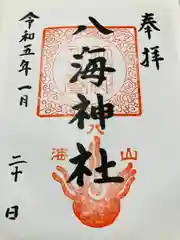 奉拝
八海神社
八
海山
令和五年一月
二十日